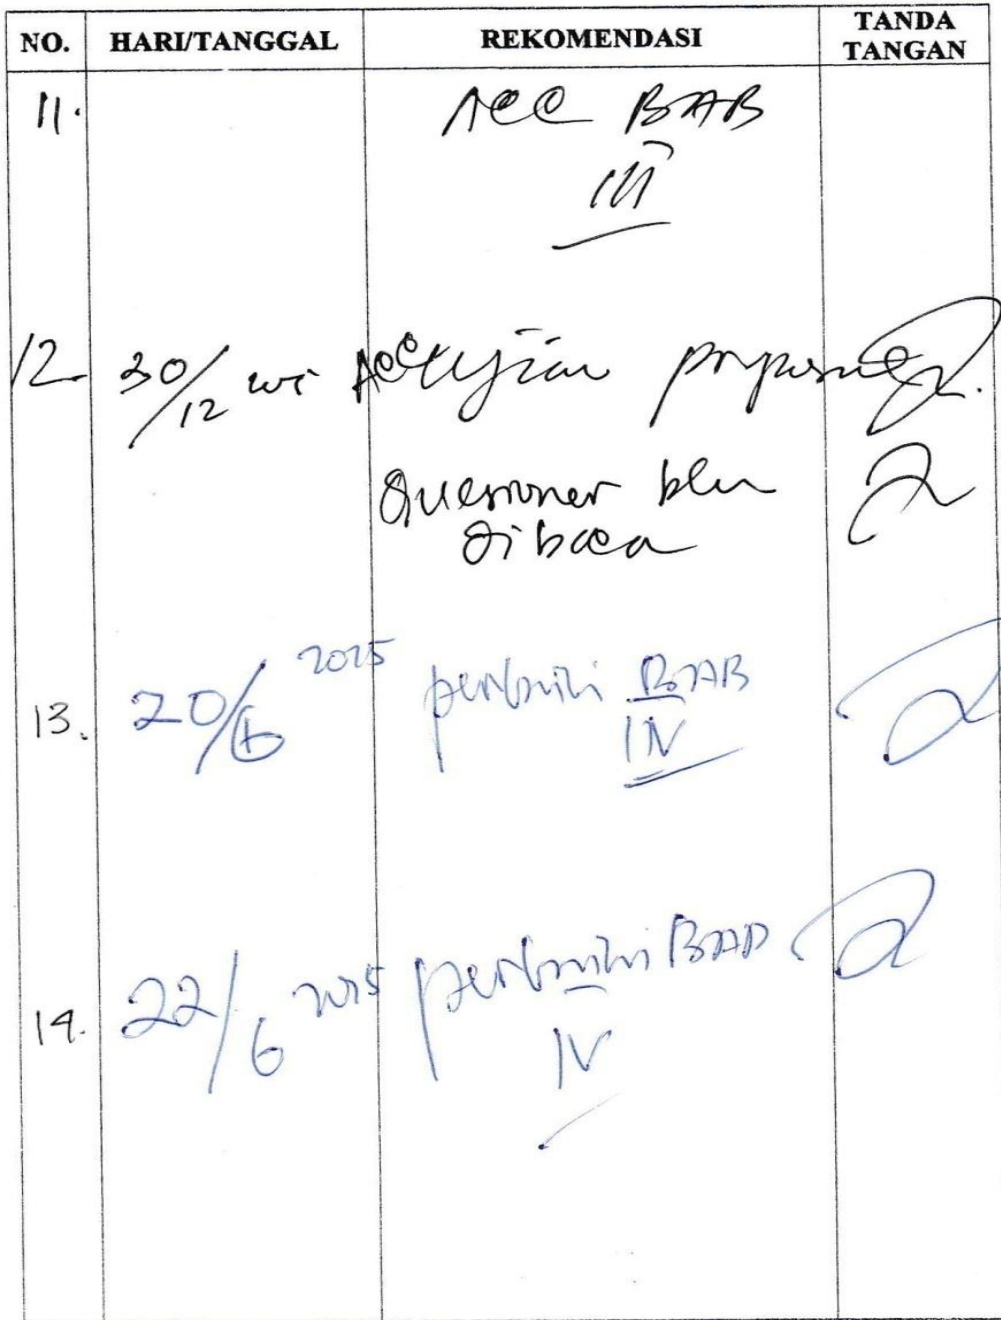 NO. HARI/TANGGAL REKOMENDASI TANDA TANGAN
11. ACC BAB
III
12 30/12 ACC Ujian
Questioner blm
dibaca
13. 20/6 2025 perbaiki BAB
IV
14. 22/6 2025 perbaiki BAB
IV